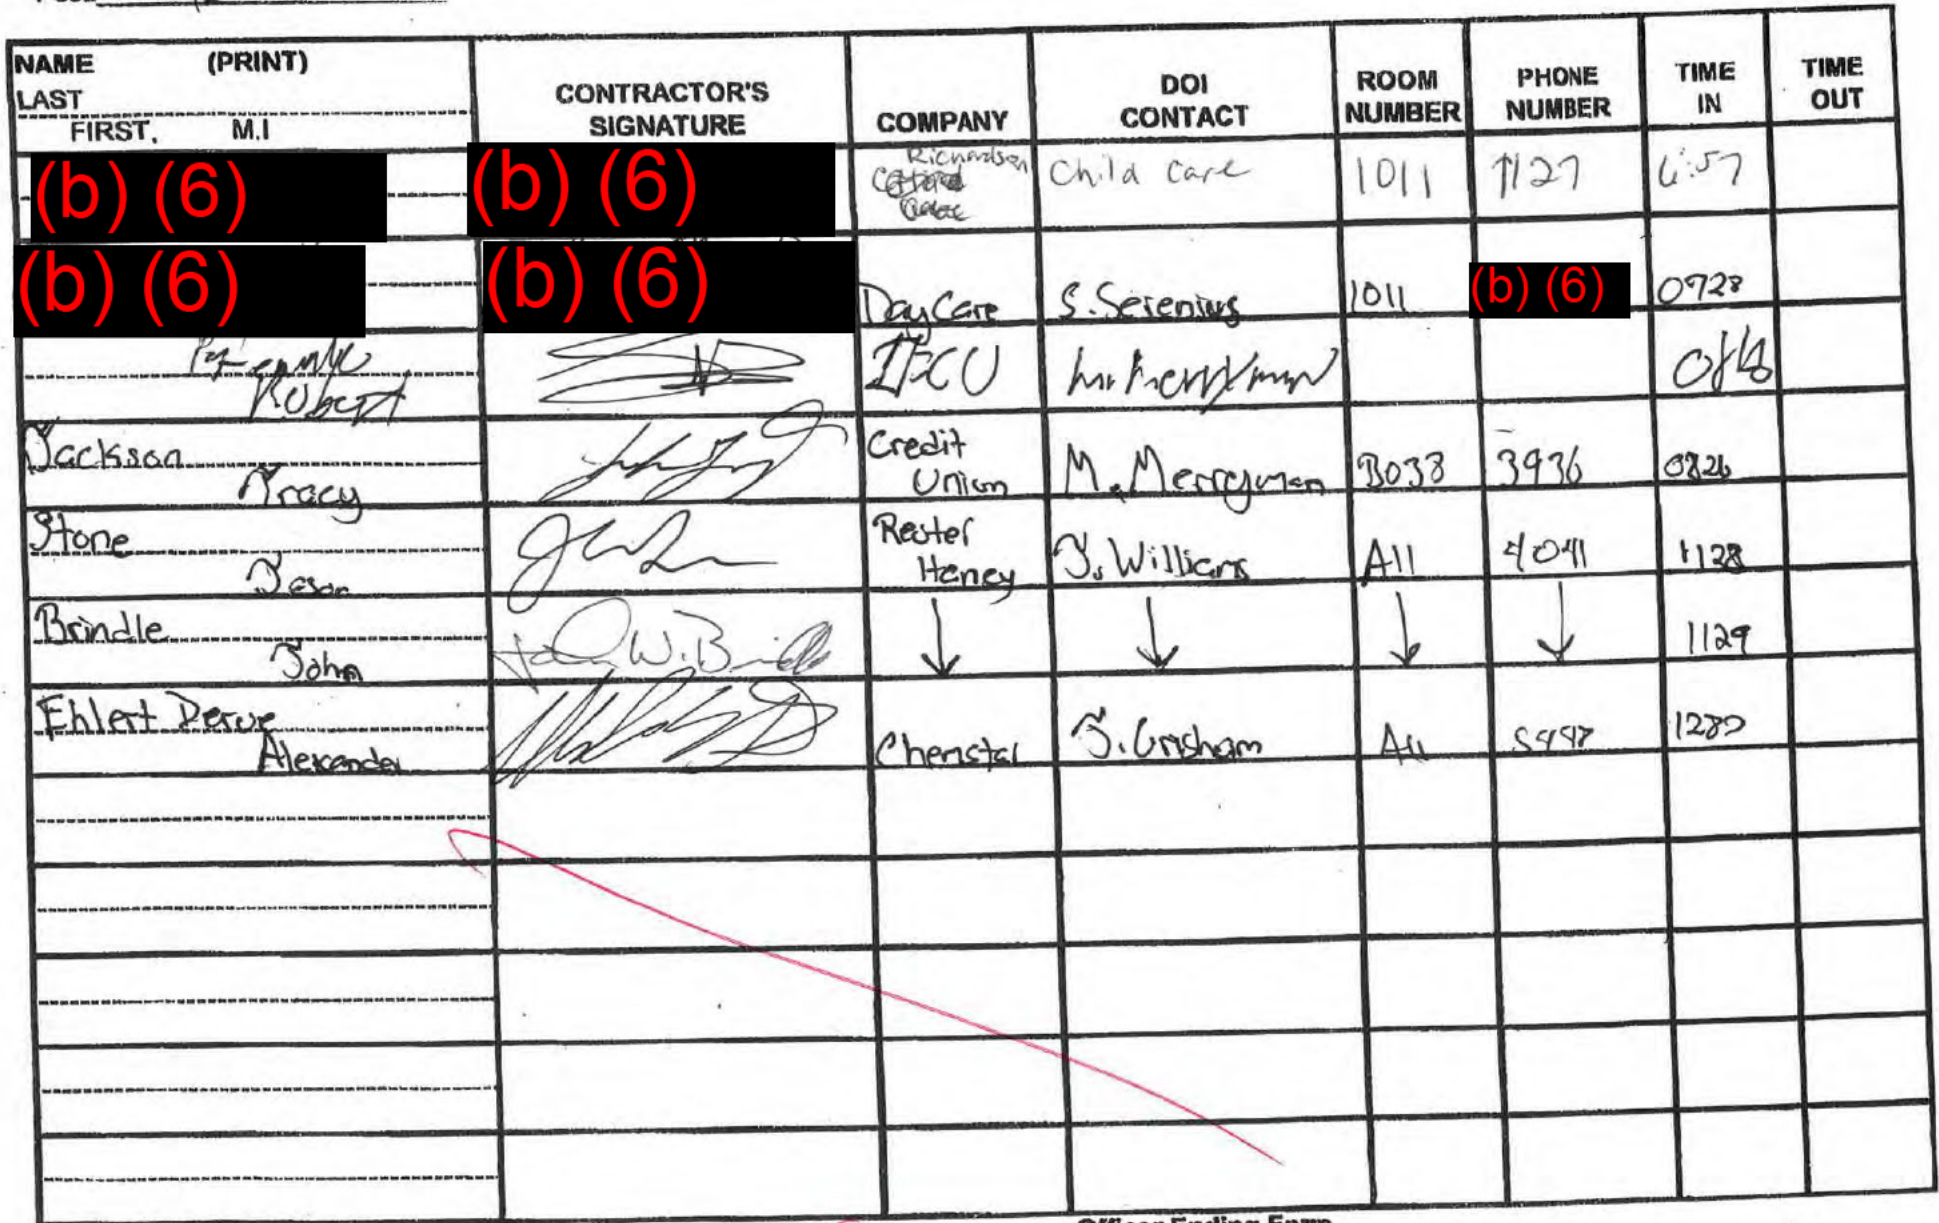 NAME (PRINT)
LAST
FIRST, M.I
CONTRACTOR'S
SIGNATURE
COMPANY
DOI
CONTACT
ROOM
NUMBER
PHONE
NUMBER
TIME
IN
TIME
OUT
(b) (6) (b) (6) Richardson Child Care 1011 7127 6:57
(b) (6) (b) (6) DayCare S. Serenius 1011 (b) (6) 0728
Robert IFCU
Jackson
Tracy
Credit
Union
M. Merryman B038 3936 0826
Stone
Jason
Reuter
Haney
J. Williams All 4041 1128
Brindle
John
John W. Brindle
1129
Ehlert Derue
Alexander
Chemstar J. Grisham All
Officer Ending Form